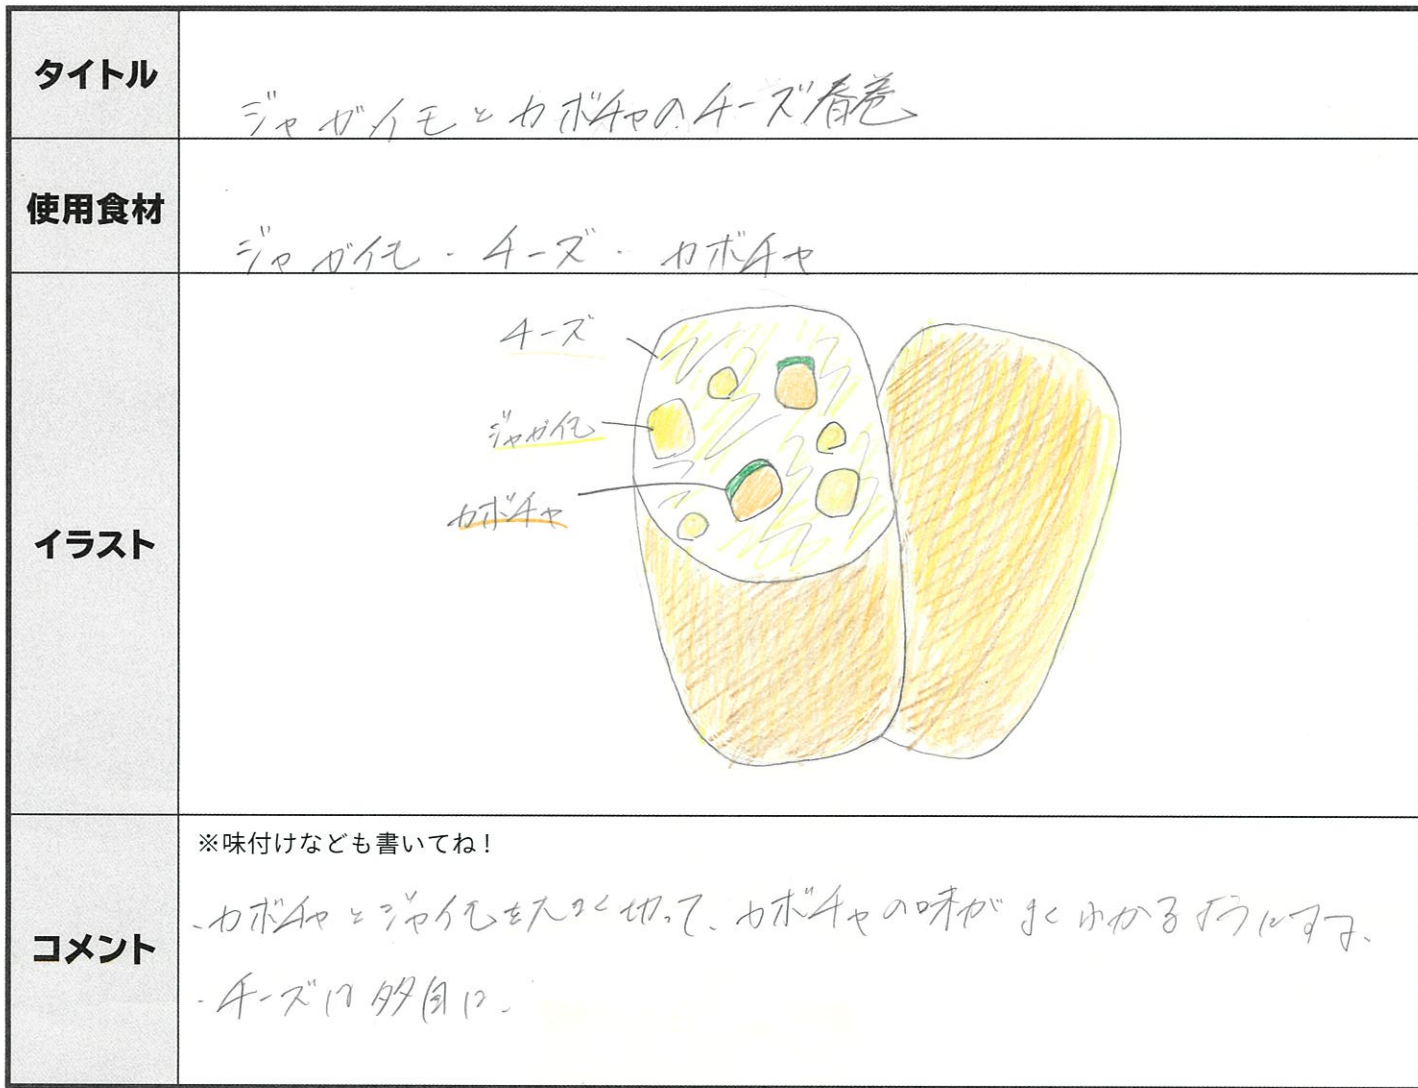 タイトル
ジャガイモとカボチャのチーズ春巻
使用食材
ジャガイモ・チーズ・カボチャ
イラスト
チーズ
ジャガイモ
カボチャ
コメント
※味付けなども書いてね！
・カボチャとジャイモを大きく切って、カボチャの味がよくわかるようにする、
・チーズは多目に、